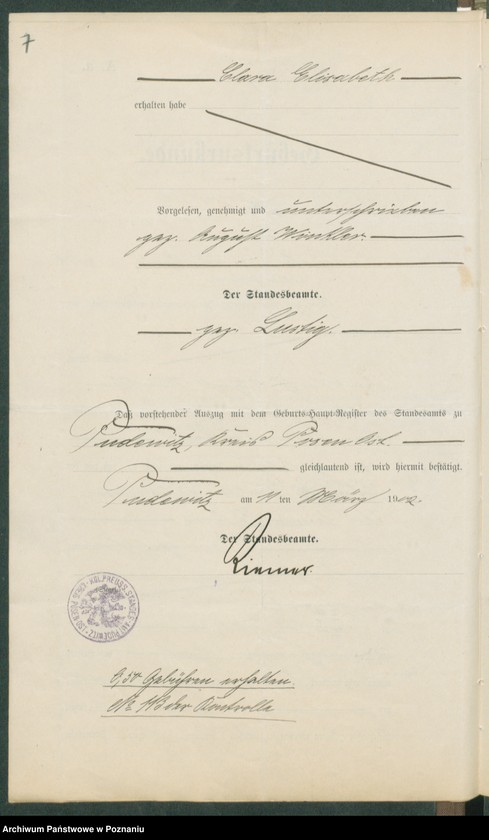 7
Clara Elisabeth
erhalten habe
Vorgelesen, genehmigt und unterschrieben
gez. August Winkler.
Der Standesbeamte.
gez. Lustig.
Daß vorstehender Auszug mit dem Geburts-Haupt-Register des Standesamts zu
Pudewitz, Kreis Posen Ost.
gleichlautend ist, wird hiermit bestätigt.
Pudewitz am 11 ten März 1902.
Der Standesbeamte.
Riemer.
KÖN. PREUSS. STANDES-AMT PUDEWITZ
0,50 Gebühren erhalten.
der Kontrolle
Archiwum Państwowe w Poznaniu